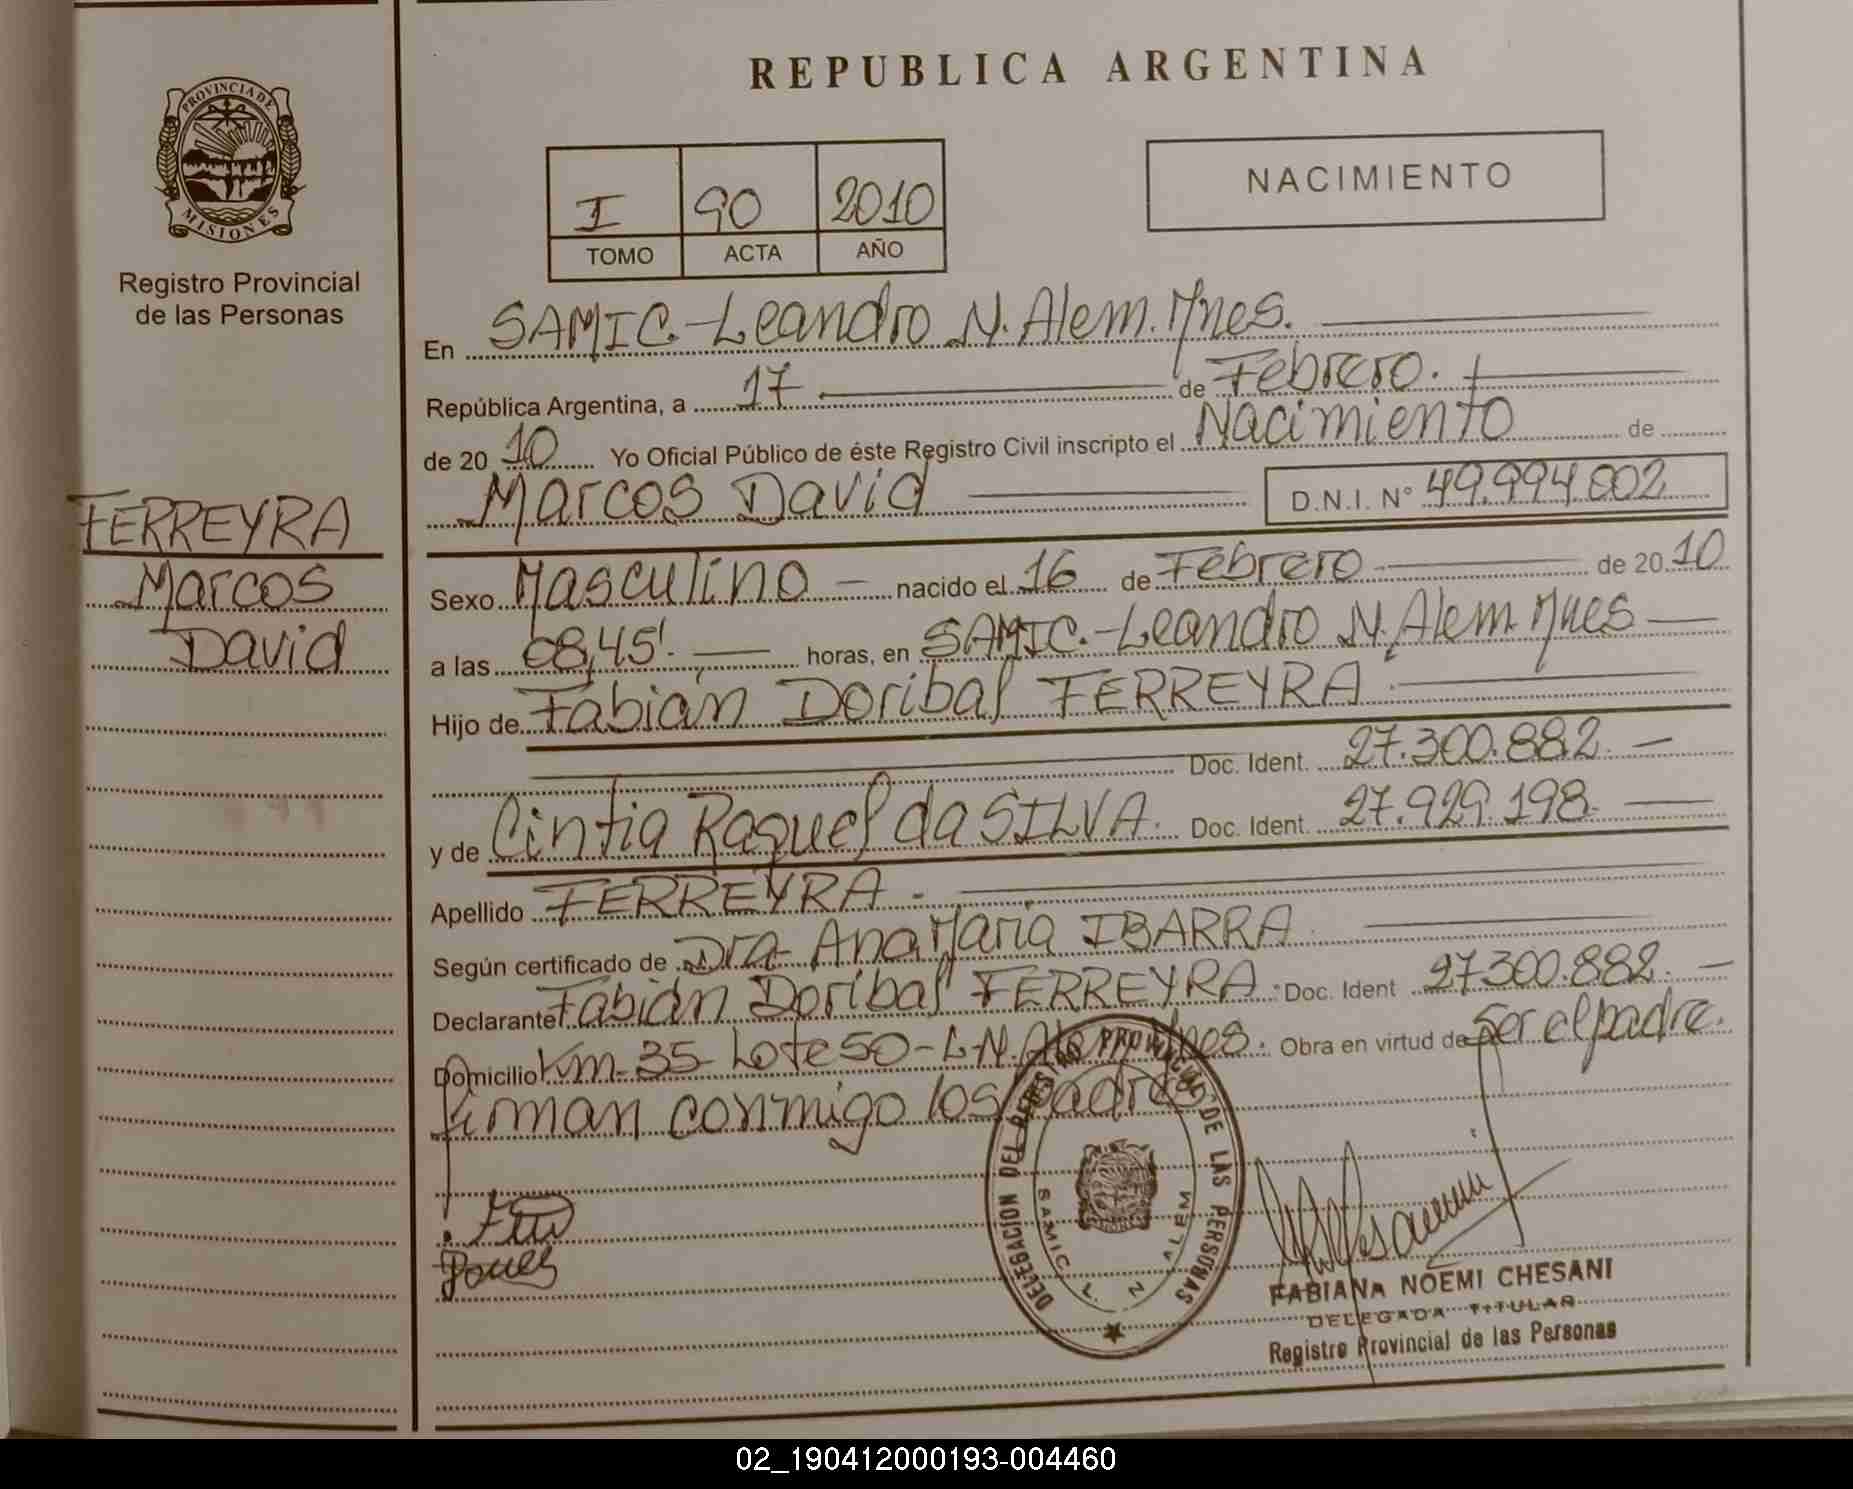 PROVINCIA DE
MISIONES
Registro Provincial
de las Personas
FERREYRA
Marcos
David
REPUBLICA ARGENTINA
I 90 2010
TOMO ACTA AÑO
NACIMIENTO
En SAMIC.-Leandro N. Alem. Mnes.
República Argentina, a 17 de Febrero.
de 2010 Yo Oficial Público de éste Registro Civil inscripto el Nacimiento de
Marcos David D.N.I. N° 49.994.002
Sexo Masculino - nacido el 16 de Febrero de 2010
a las 08,45'. horas, en SAMIC.-Leandro N. Alem Mnes
Hijo de Fabián Doribal FERREYRA
Doc. Ident. 27.300.882.-
y de Cintia Raquel da SILVA. Doc. Ident. 27.929.198.
Apellido FERREYRA.
Según certificado de Dra Ana María IBARRA.
Declarante Fabián Doribal FERREYRA. Doc. Ident 27300.882.-
Domicilio Km-35-Lote 50-L-N.Alem Mnes. Obra en virtud de Ser el padre.
firman conmigo los padres
DELEGACION DEL REGISTRO PROVINCIAL DE LAS PERSONAS
SAMIC L. N. ALEM
FABIANA NOEMI CHESANI
DELEGADA TITULAR
Registro Provincial de las Personas
02_190412000193-004460